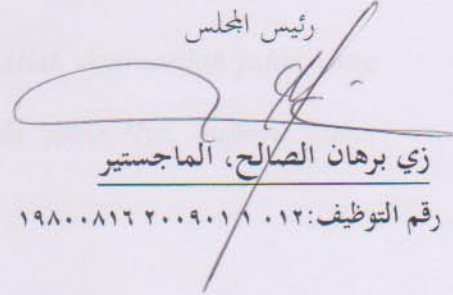 رئيس المجلس
زي برهان الصالح، الماجستير
رقم التوظيف: ١٩٨٠٠٨١٦ ٢٠٠٩٠١ ١ ٠١٢